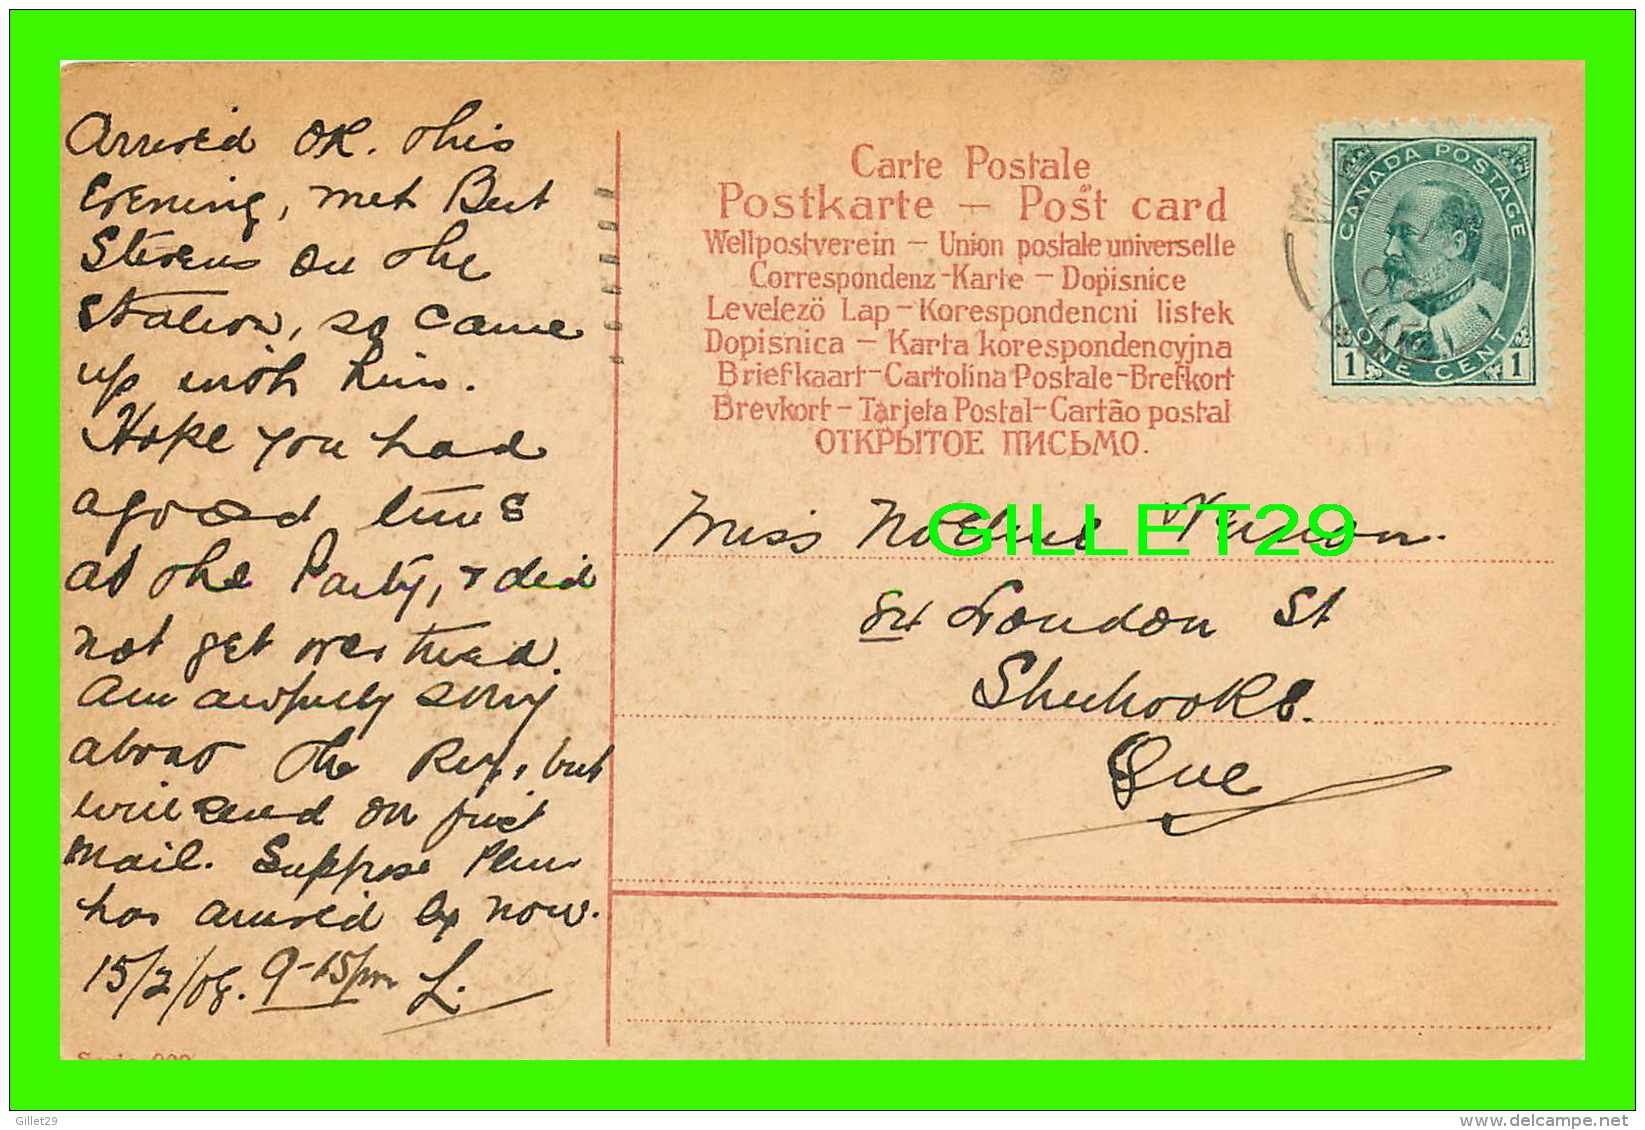 Arrived OK. this
Evening, met Bert
Stevens on the
Station, so came
up with him.
Hope you had
a good time
at the Party, & did
not get over tired.
Am awfully sorry
about the Key, but
will send on first
mail. Suppose
has arrived by now.
15/2/08. 9-15pm L.
Carte Postale
Postkarte – Post card
Weltpostverein – Union postale universelle
Correspondenz-Karte – Dopisnice
Levelezö Lap – Korespondencni listek
Dopisnica – Karta korespondencyjna
Briefkaart – Cartolina Postale – Brefkort
Brevkort – Tarjeta Postal – Cartão postal
ОТКРЫТОЕ ПИСЬМО.
CANADA POSTAGE
1 ONE CENT 1
Miss
GILLET29
London St
Sherbrooke.
Que
Gillet29
www.delcampe.net